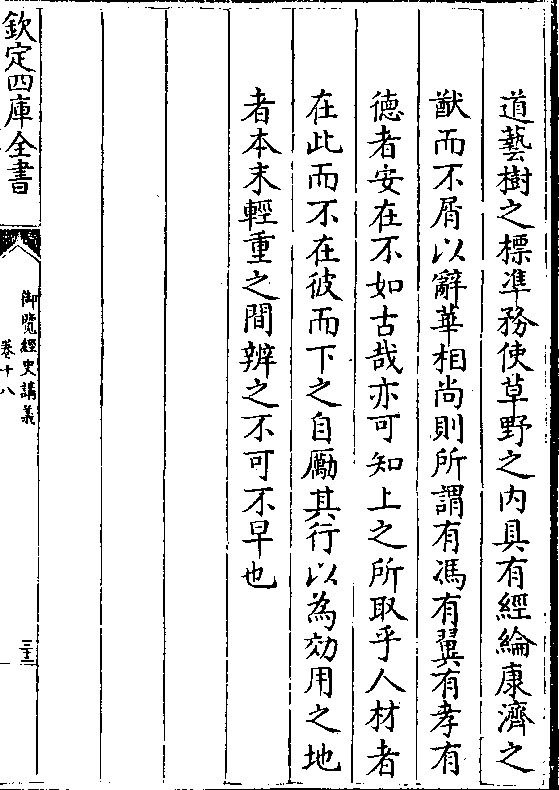 道藝樹之標準務使草野之内具有經綸康濟之
猷而不屑以辭華相尚則所謂有馮有翼有孝有
德者安在不如古哉亦可知上之所取乎人材者
在此而不在彼而下之自勵其行以為効用之地
者本末輕重之間辨之不可不早也
欽定四庫全書
御覽經史講義
卷十八
三十三